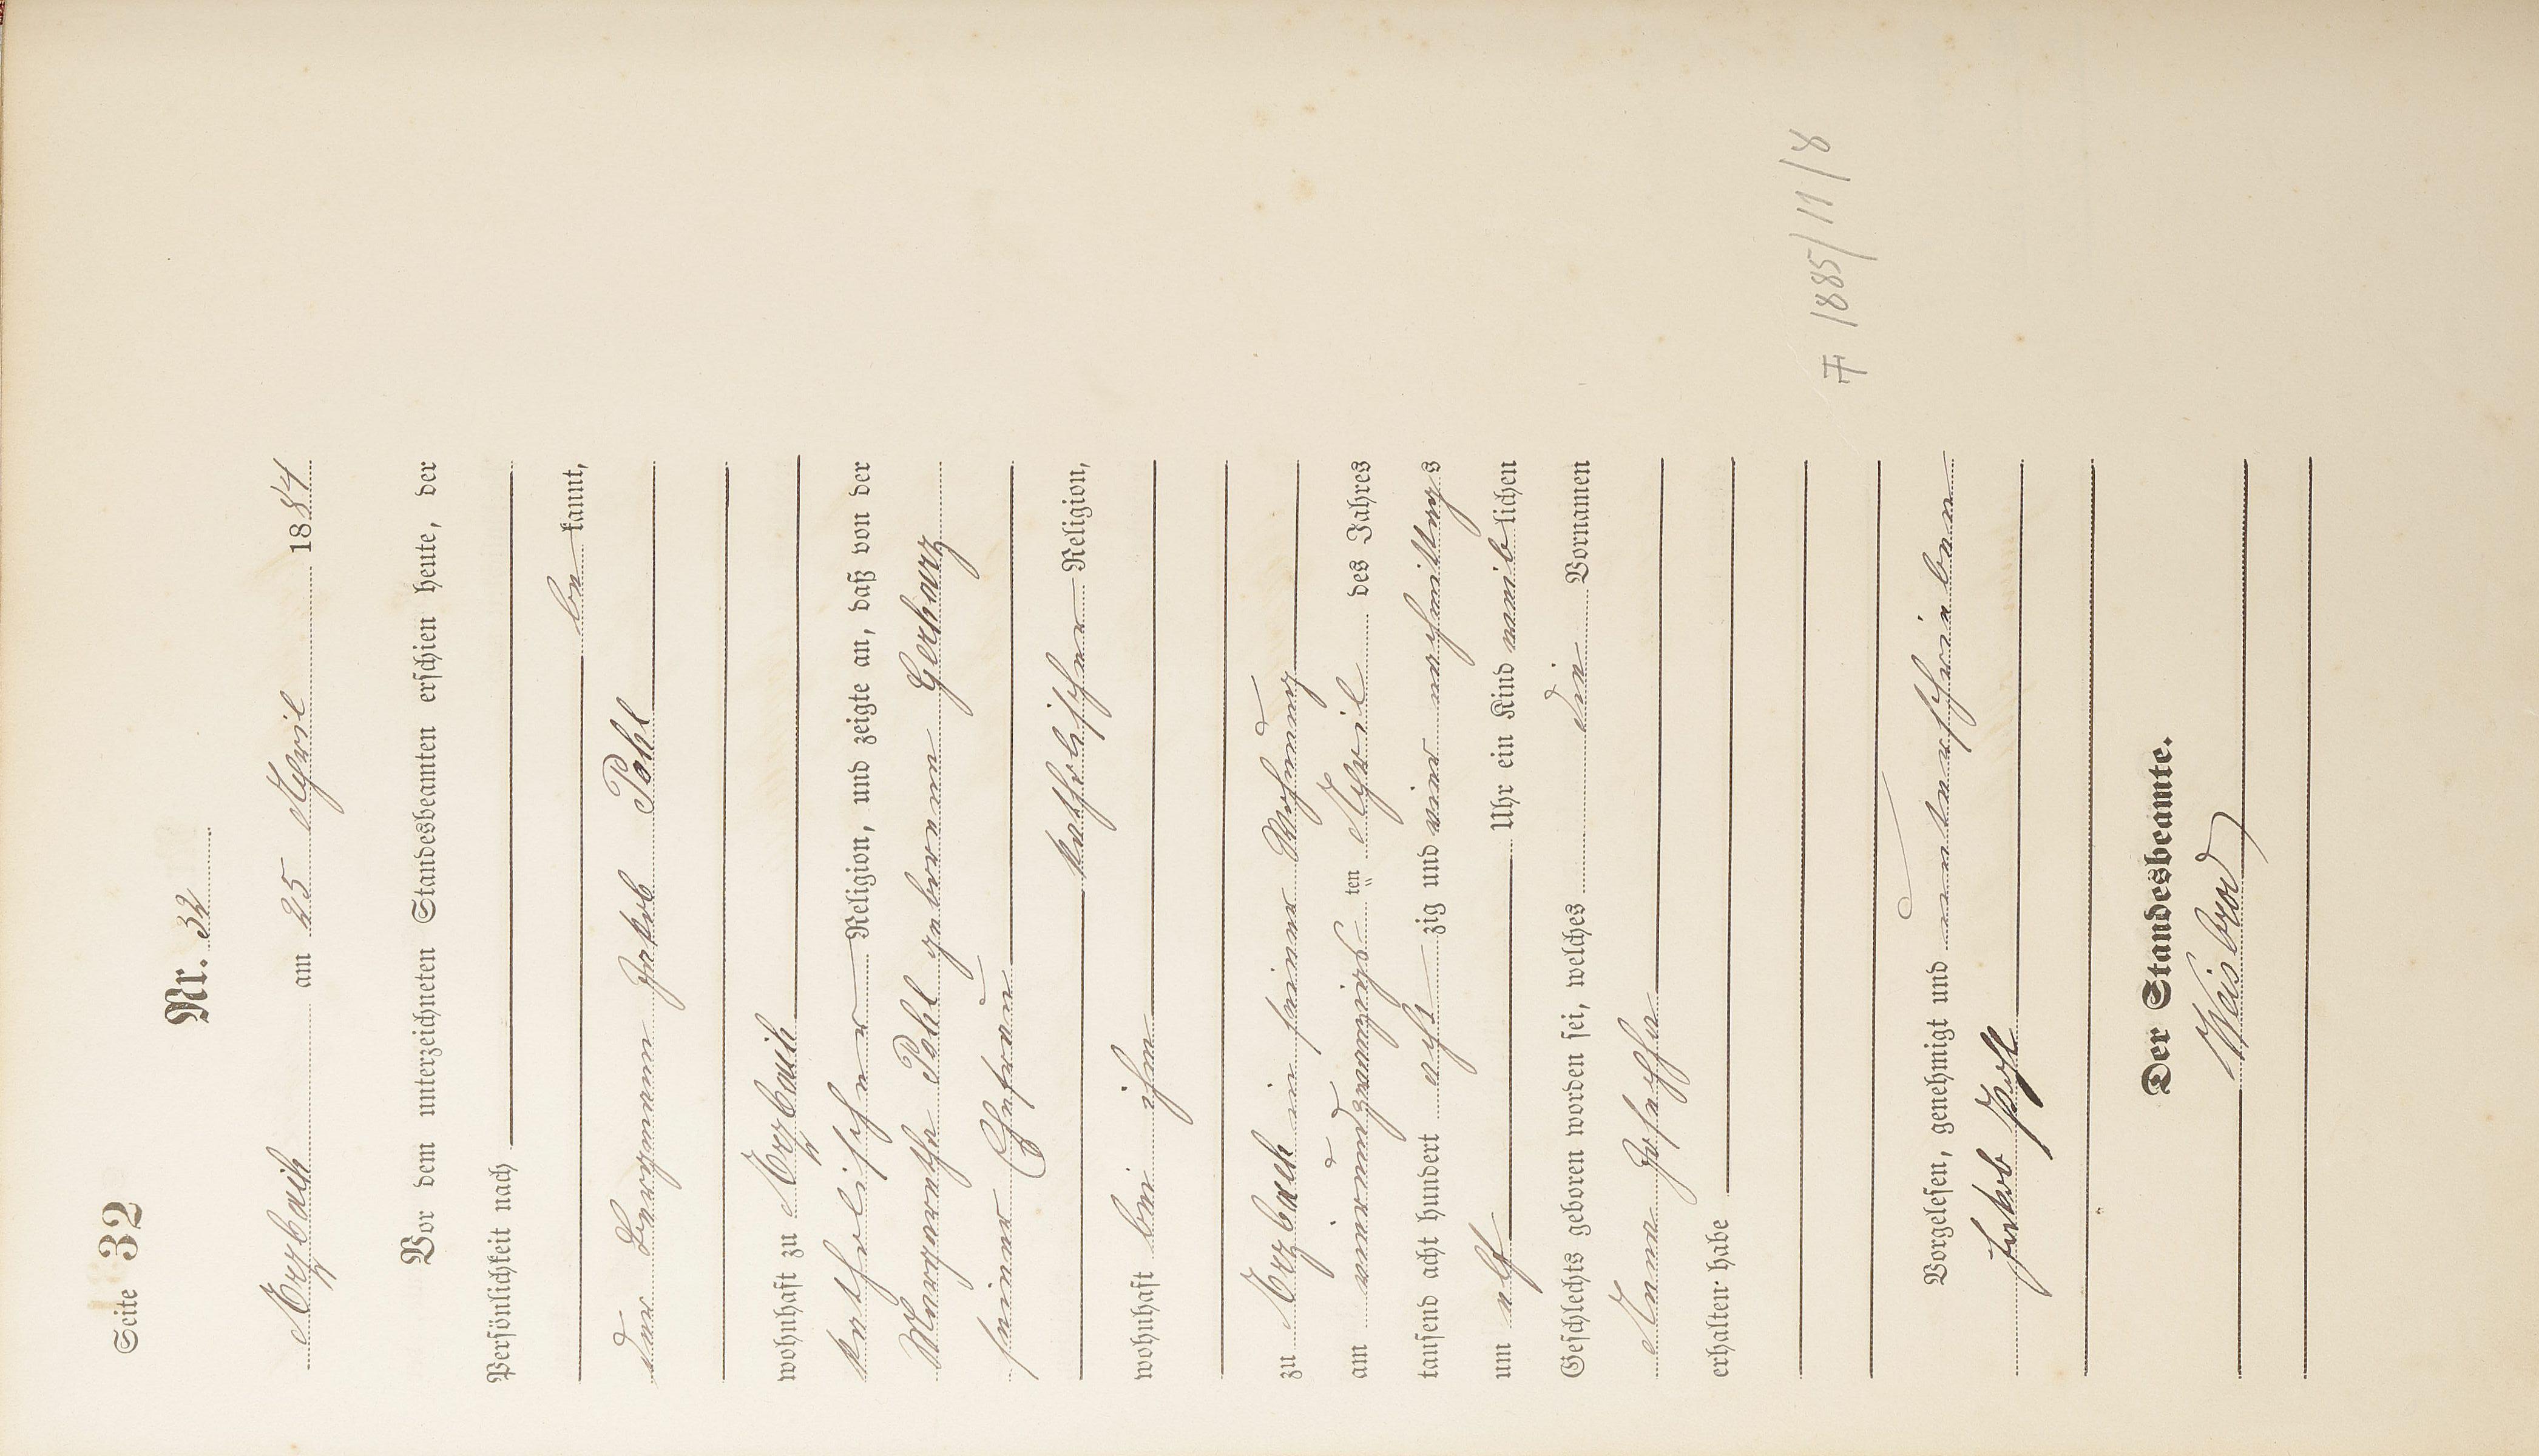 Seite 32
Nr. 32
Arzbach am 25 April 1884
Vor dem unterzeichneten Standesbeamten erschien heute, der
Persönlichkeit nach
be kannt,
der Bergmann Jakob Pohl
wohnhaft zu Arzbach
katholischer Religion, und zeigte an, daß von der
Margarethe Pohl geborenen Gerharz
seiner Ehefrau
katholischer Religion,
wohnhaft bei ihm
zu Arzbach in seiner Wohnung
am vierundzwanzigs ten April des Jahres
tausend acht hundert acht zig und vier nachmittags
um elf Uhr ein Kind weib lichen
Geschlechts geboren worden sei, welches die Vornamen
Anna Josepha
erhalten habe
Vorgelesen, genehmigt und unterschrieben
Jakob Pohl
Der Standesbeamte.
Weisbrod
1885/11/8